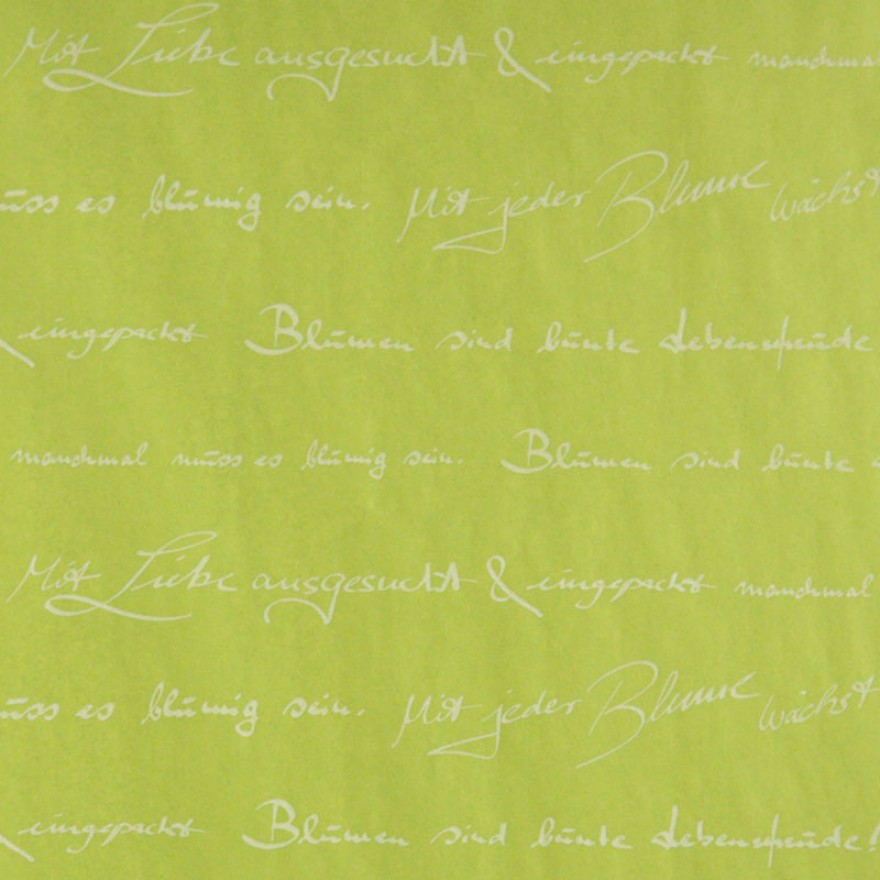 Mit Liebe ausgesucht & eingepackt manchmal
muss es blumig sein. Mit jeder Blume wächst
eingepackt Blumen sind bunte Lebensfreude
manchmal muss es blumig sein. Blumen sind bunte
Mit Liebe ausgesucht & eingepackt manchmal
muss es blumig sein. Mit jeder Blume wächst
eingepackt Blumen sind bunte Lebensfreude!